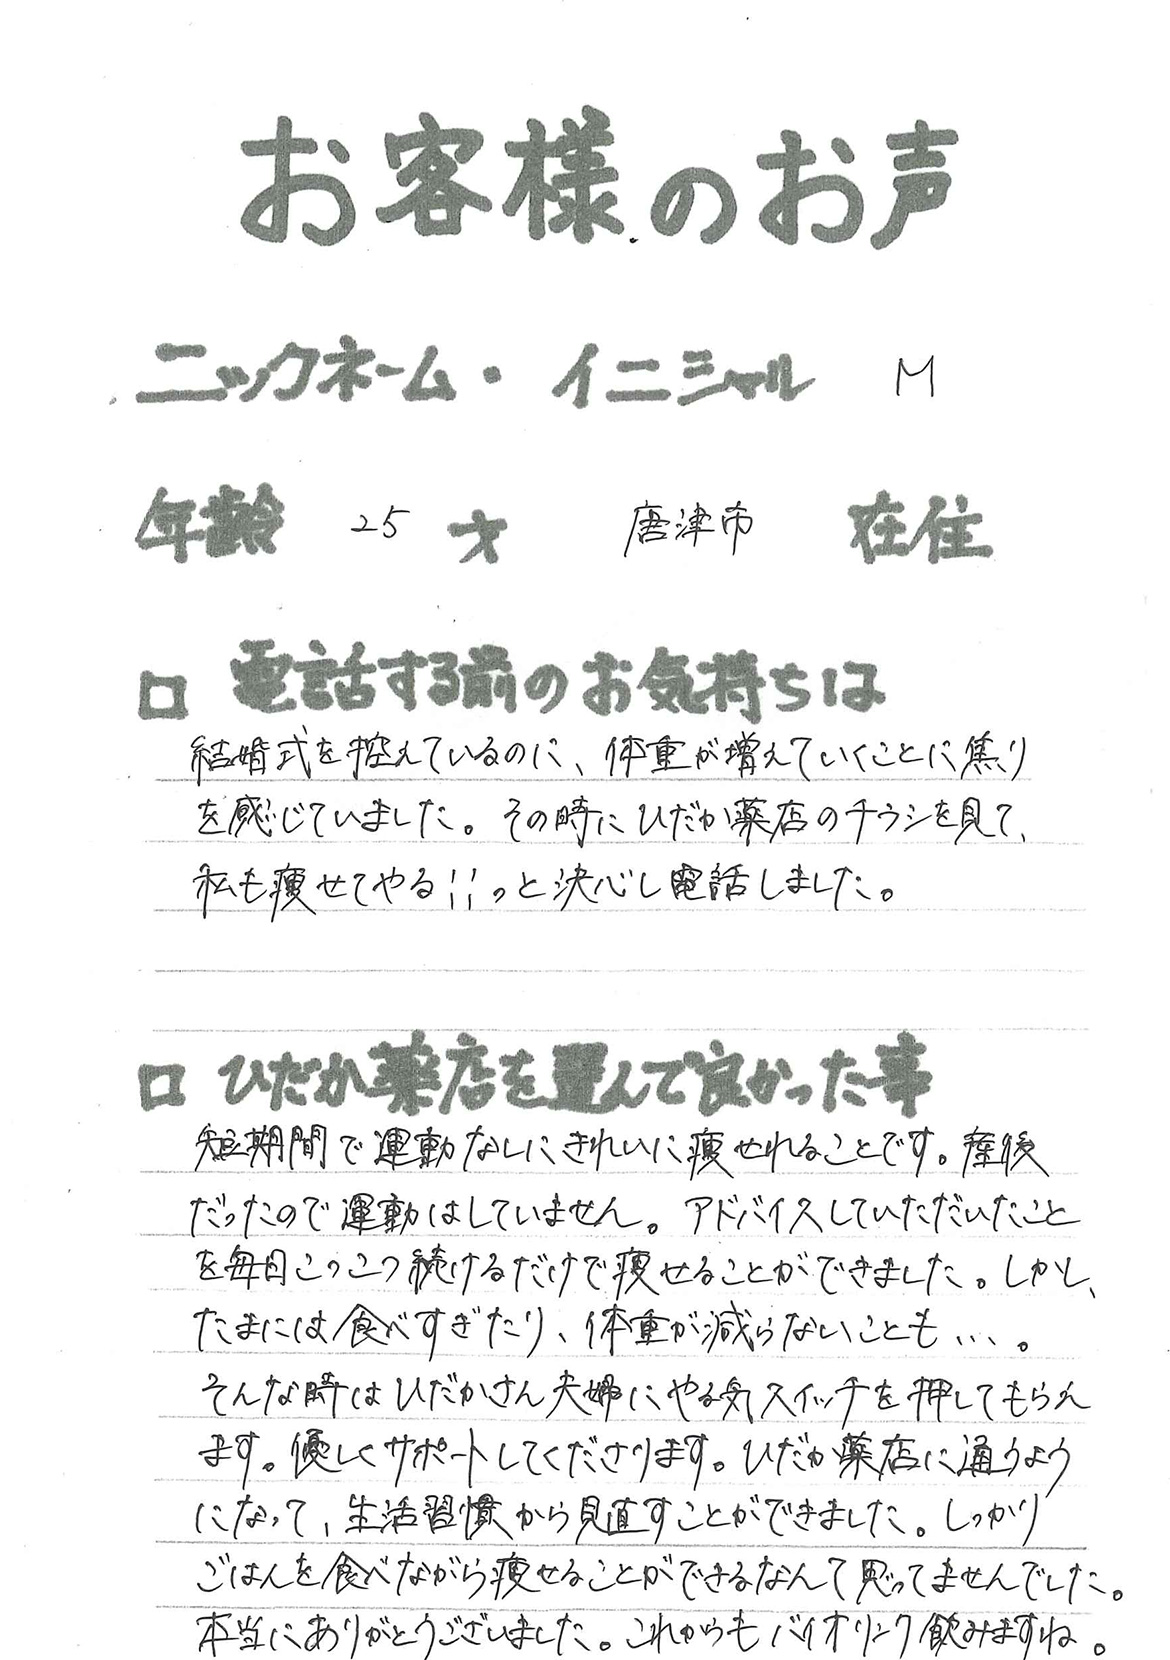 お客様のお声
ニックネーム・イニシャル M
年齢 25 才 唐津市 在住
□ 電話する前のお気持ちは
結婚式を控えているのに、体重が増えていくことに焦り
を感じていました。その時にひだか薬店のチラシを見て、
私も痩せてやる!!っと決心し電話しました。
□ ひだか薬店を選んで良かった事
短期間で運動なしにきれいに痩せれることです。産後
だったので運動はしていません。アドバイスしていただいたこと
を毎日こつこつ続けるだけで痩せることができました。しかし、
たまには食べすぎたり、体重が減らないことも…。
そんな時はひだかさん夫婦にやる気スイッチを押してもらえ
ます。優しくサポートしてくださります。ひだか薬店に通うよう
になって、生活習慣から見直すことができました。しっかり
ごはんを食べながら痩せることができるなんて思ってませんでした。
本当にありがとうございました。これからもバイオリンク飲みますね。